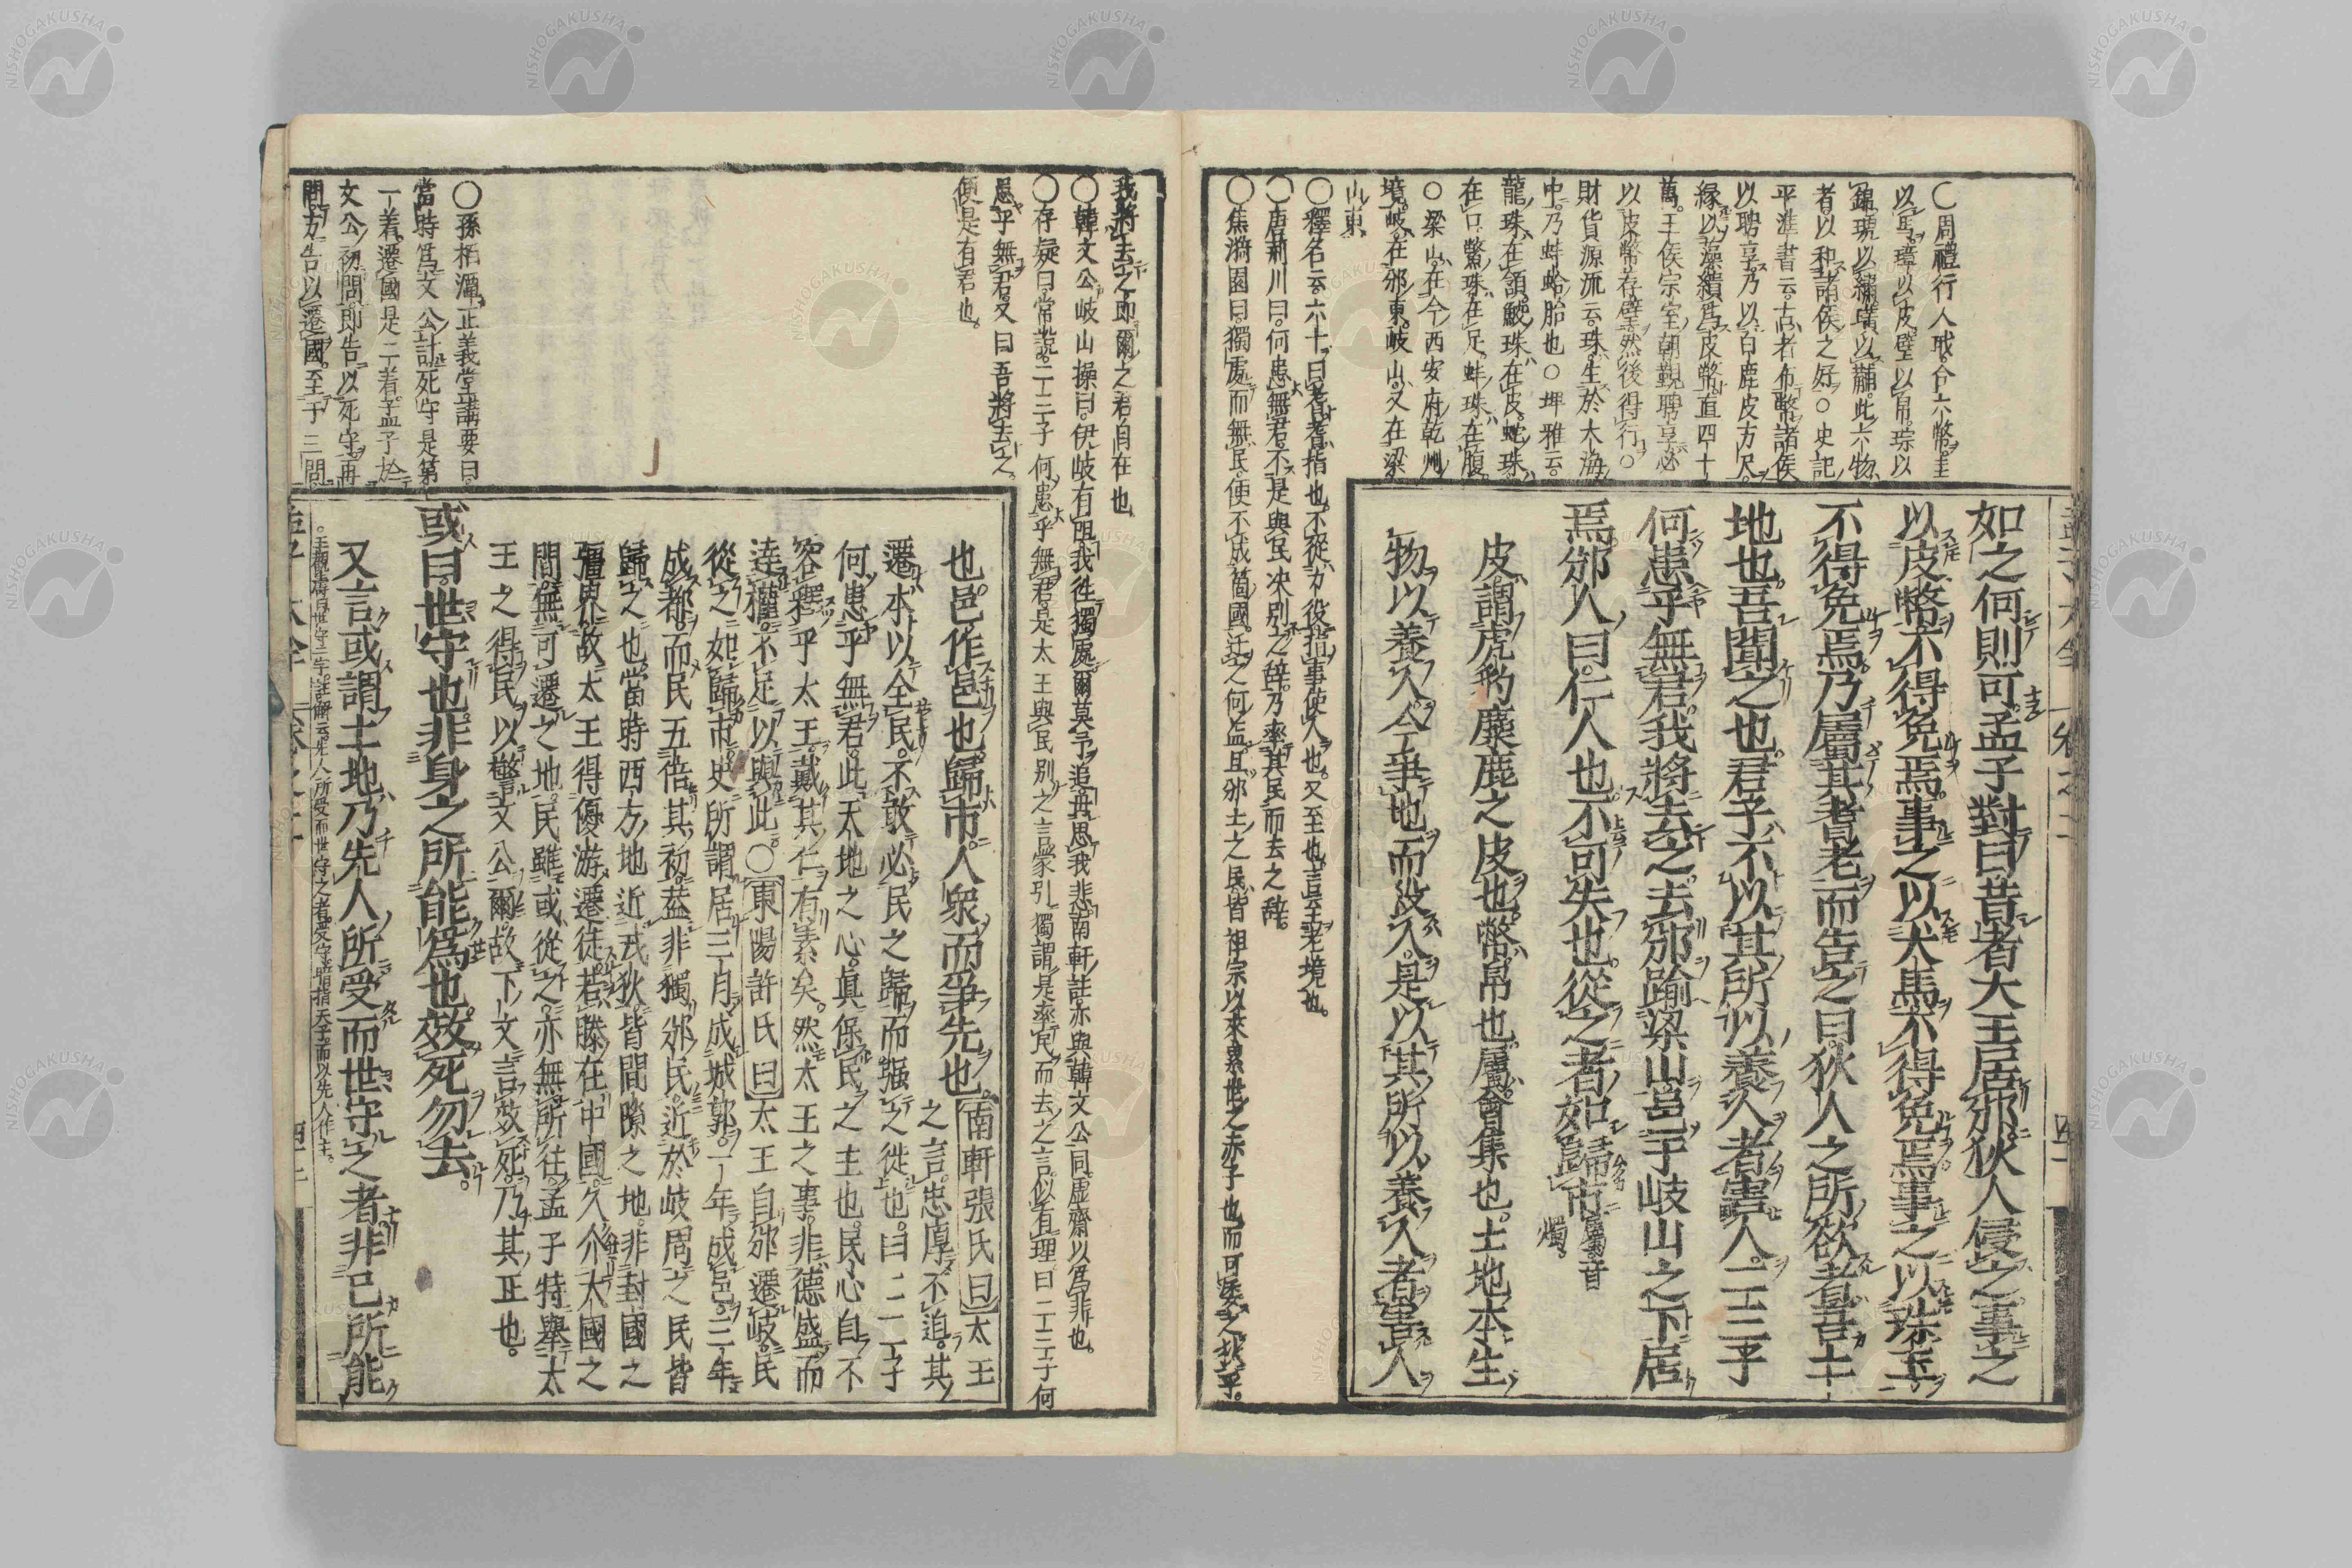 如之何則可孟子對曰昔者大王居邠狄人侵之事之
以皮幣不得免焉事之以犬馬不得免焉事之以珠玉
不得免焉乃屬其耆老而告之曰狄人之所欲者吾土
地也吾聞之也君子不以其所以養人者害人二三子
何患乎無君我將去之去邠踰梁山邑于岐山之下居
焉邠人曰仁人也不可失也從之者如歸市屬音燭
皮謂虎豹麋鹿之皮也幣帛也屬會集也土地本生
物以養人今爭地而殺人是以其所以養人者害人
〇周禮行人職合六幣圭
以馬璋以皮璧以帛琮以
錦琥以繡璜以黼此六物
者以和諸侯之好〇史記
平準書云古者布幣諸侯
以聘享乃以白鹿皮方尺
緣以藻繢爲皮幣直四十
萬王侯宗室朝覲聘享必
以皮幣荐璧然後得行〇
財貨源流云珠生於大海
中乃蚌蛤胎也〇埤雅云
龍珠在頷鮫珠在皮蛇珠
在口鱉珠在足蚌珠在腹
〇梁山在今西安府乾州
境岐在邠東岐山又在梁
山東
〇釋名云六十曰耆耆指也不從力役指事使人也又至也言至老境也
〇唐荊川曰何患無君不是與民决別之辭乃率其民而去之辭
〇焦漪園曰獨處而無民便不成箇國遷之何益且邠土之民皆祖宗以來累世之赤子也而可棄之狄乎
我將去之即爾之君自在也
〇韓文公岐山操曰伊岐有岨我往獨處爾莫予追無思我悲南軒註亦與韓文公同虛齋以爲非也
〇存疑曰常說二三子何患乎無君是太王與民別之言蒙引獨謂是率民而去之言似有理曰二三子何
患乎無君又曰吾將去之
便是有君也
也邑作邑也歸市人衆而爭先也南軒張氏曰太王
之言忠厚不迫其
遷本以全民不敢必民之歸而強之徙也曰二三子
何患乎無君此天地之心眞保民之主也民心自不
容釋乎太王戴其仁有素矣然太王之事非德盛而
達權不足以與此〇東陽許氏曰太王自邠遷岐民
從之如歸市史所謂居三月成城郭一年成邑三年
成都而民五倍其初蓋非獨邠民近於岐周之民皆
歸之也當時西方地近戎狄皆間隙之地非封國之
疆界故太王得優游遷徙若滕在中國久介大國之
間無可遷之地民雖或從之亦無所往孟子特舉太
王之得民以警文公爾故下文言效死乃其正也
或曰世守也非身之所能爲也效死勿去
又言或謂土地乃先人所受而世守之者非己所能
〇孫栢潭正義堂講要曰
當時爲文公計死守是第
一着遷國是二着孟子於
文公初問即告以死守再
問方告以遷國至于三問